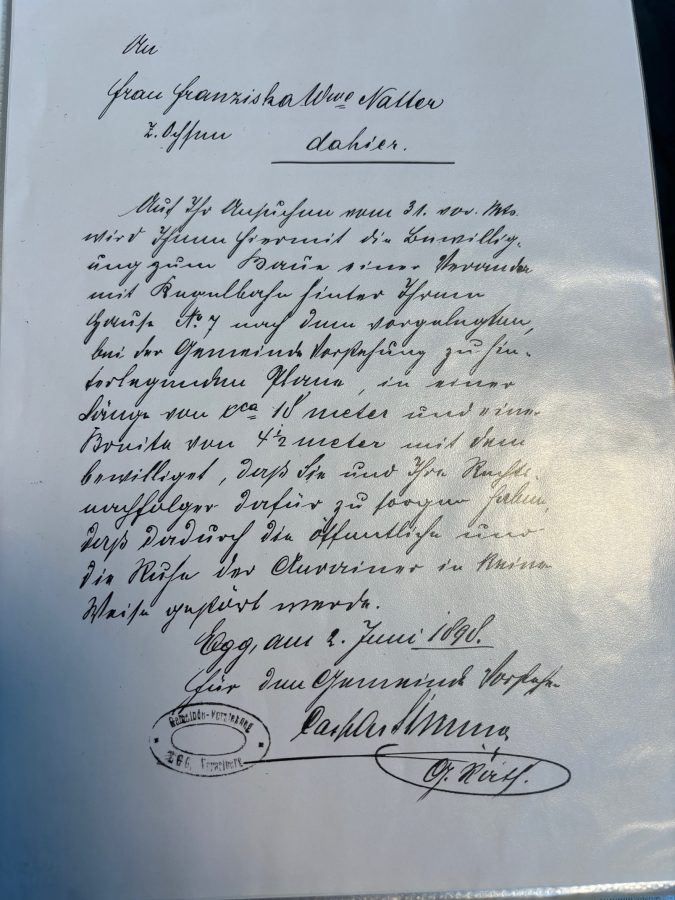 An
Frau Franziska Wwe Natter
z. Ochsen dahier.
Auf Ihr Ansuchen vom 31. vor. Mts.
wird Ihnen hiermit die Bewillig-
ung zum Baue einer Veranda
mit Kegelbahn hinter Ihrem
Hause No 7 nach dem vorgelegten,
bei der Gemeinde Vorstehung zu hin-
terlegenden Plane, in einer
Länge von cca 18 meter und einer
Breite von 4 1/2 meter mit dem
bewilliget, daß Sie und Ihre Rechts-
nachfolger dafür zu sorgen haben,
daß dadurch die öffentliche und
die Ruhe der Anrainer in keine
Weise gestört werde.
Egg, am 2. Juni 1898.
für den Gemeinde Vorsteher
Gemeinde-Vorstehung
EGG
G. Rath.